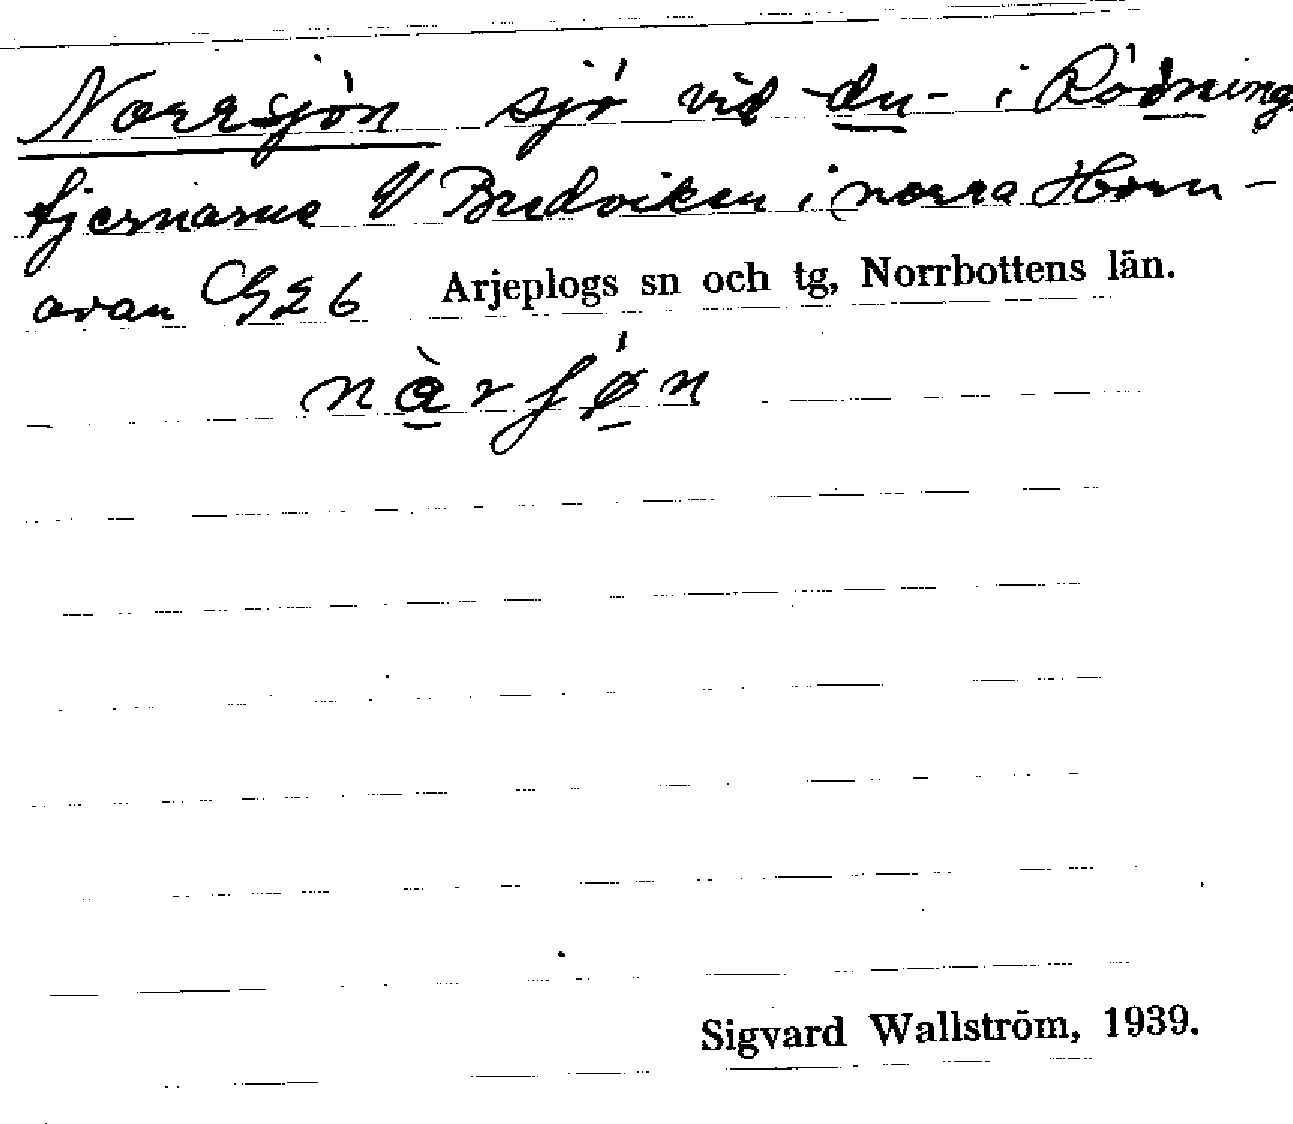 Norrsjön sjö vid -du- i Rödning
tjernarne V Bredviken i norra Horn-
avan G26 Arjeplogs sn och tg, Norrbottens län.
Sigvard Wallström, 1939.